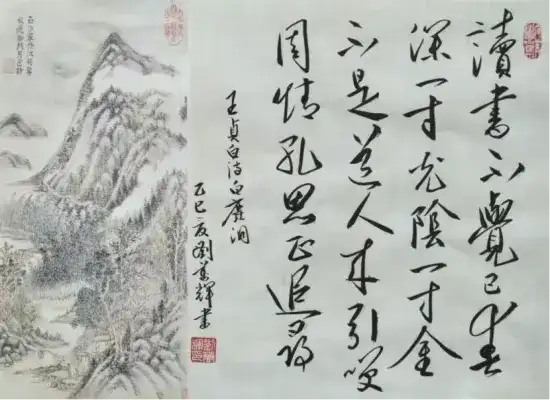 讀書不覺已春
深一寸光陰一寸金
不是道人來引咲
周情孔思正追尋
王貞白诗白鹿洞
乙巳夏劉輝書